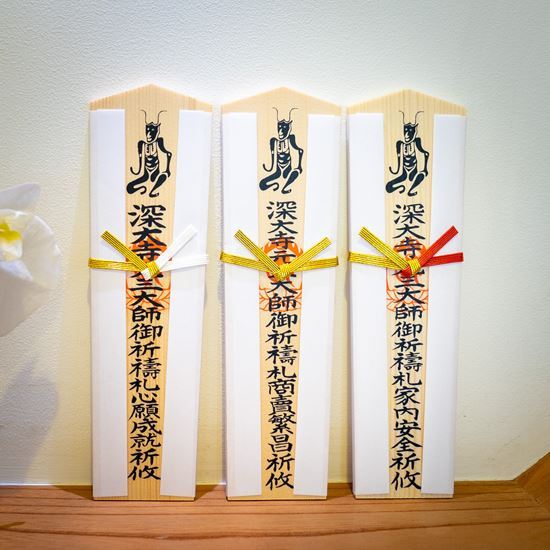 深大寺元三大師御祈禱札心願成就祈攸
深大寺元三大師御祈禱札商賣繁昌祈攸
深大寺元三大師御祈禱札家内安全祈攸